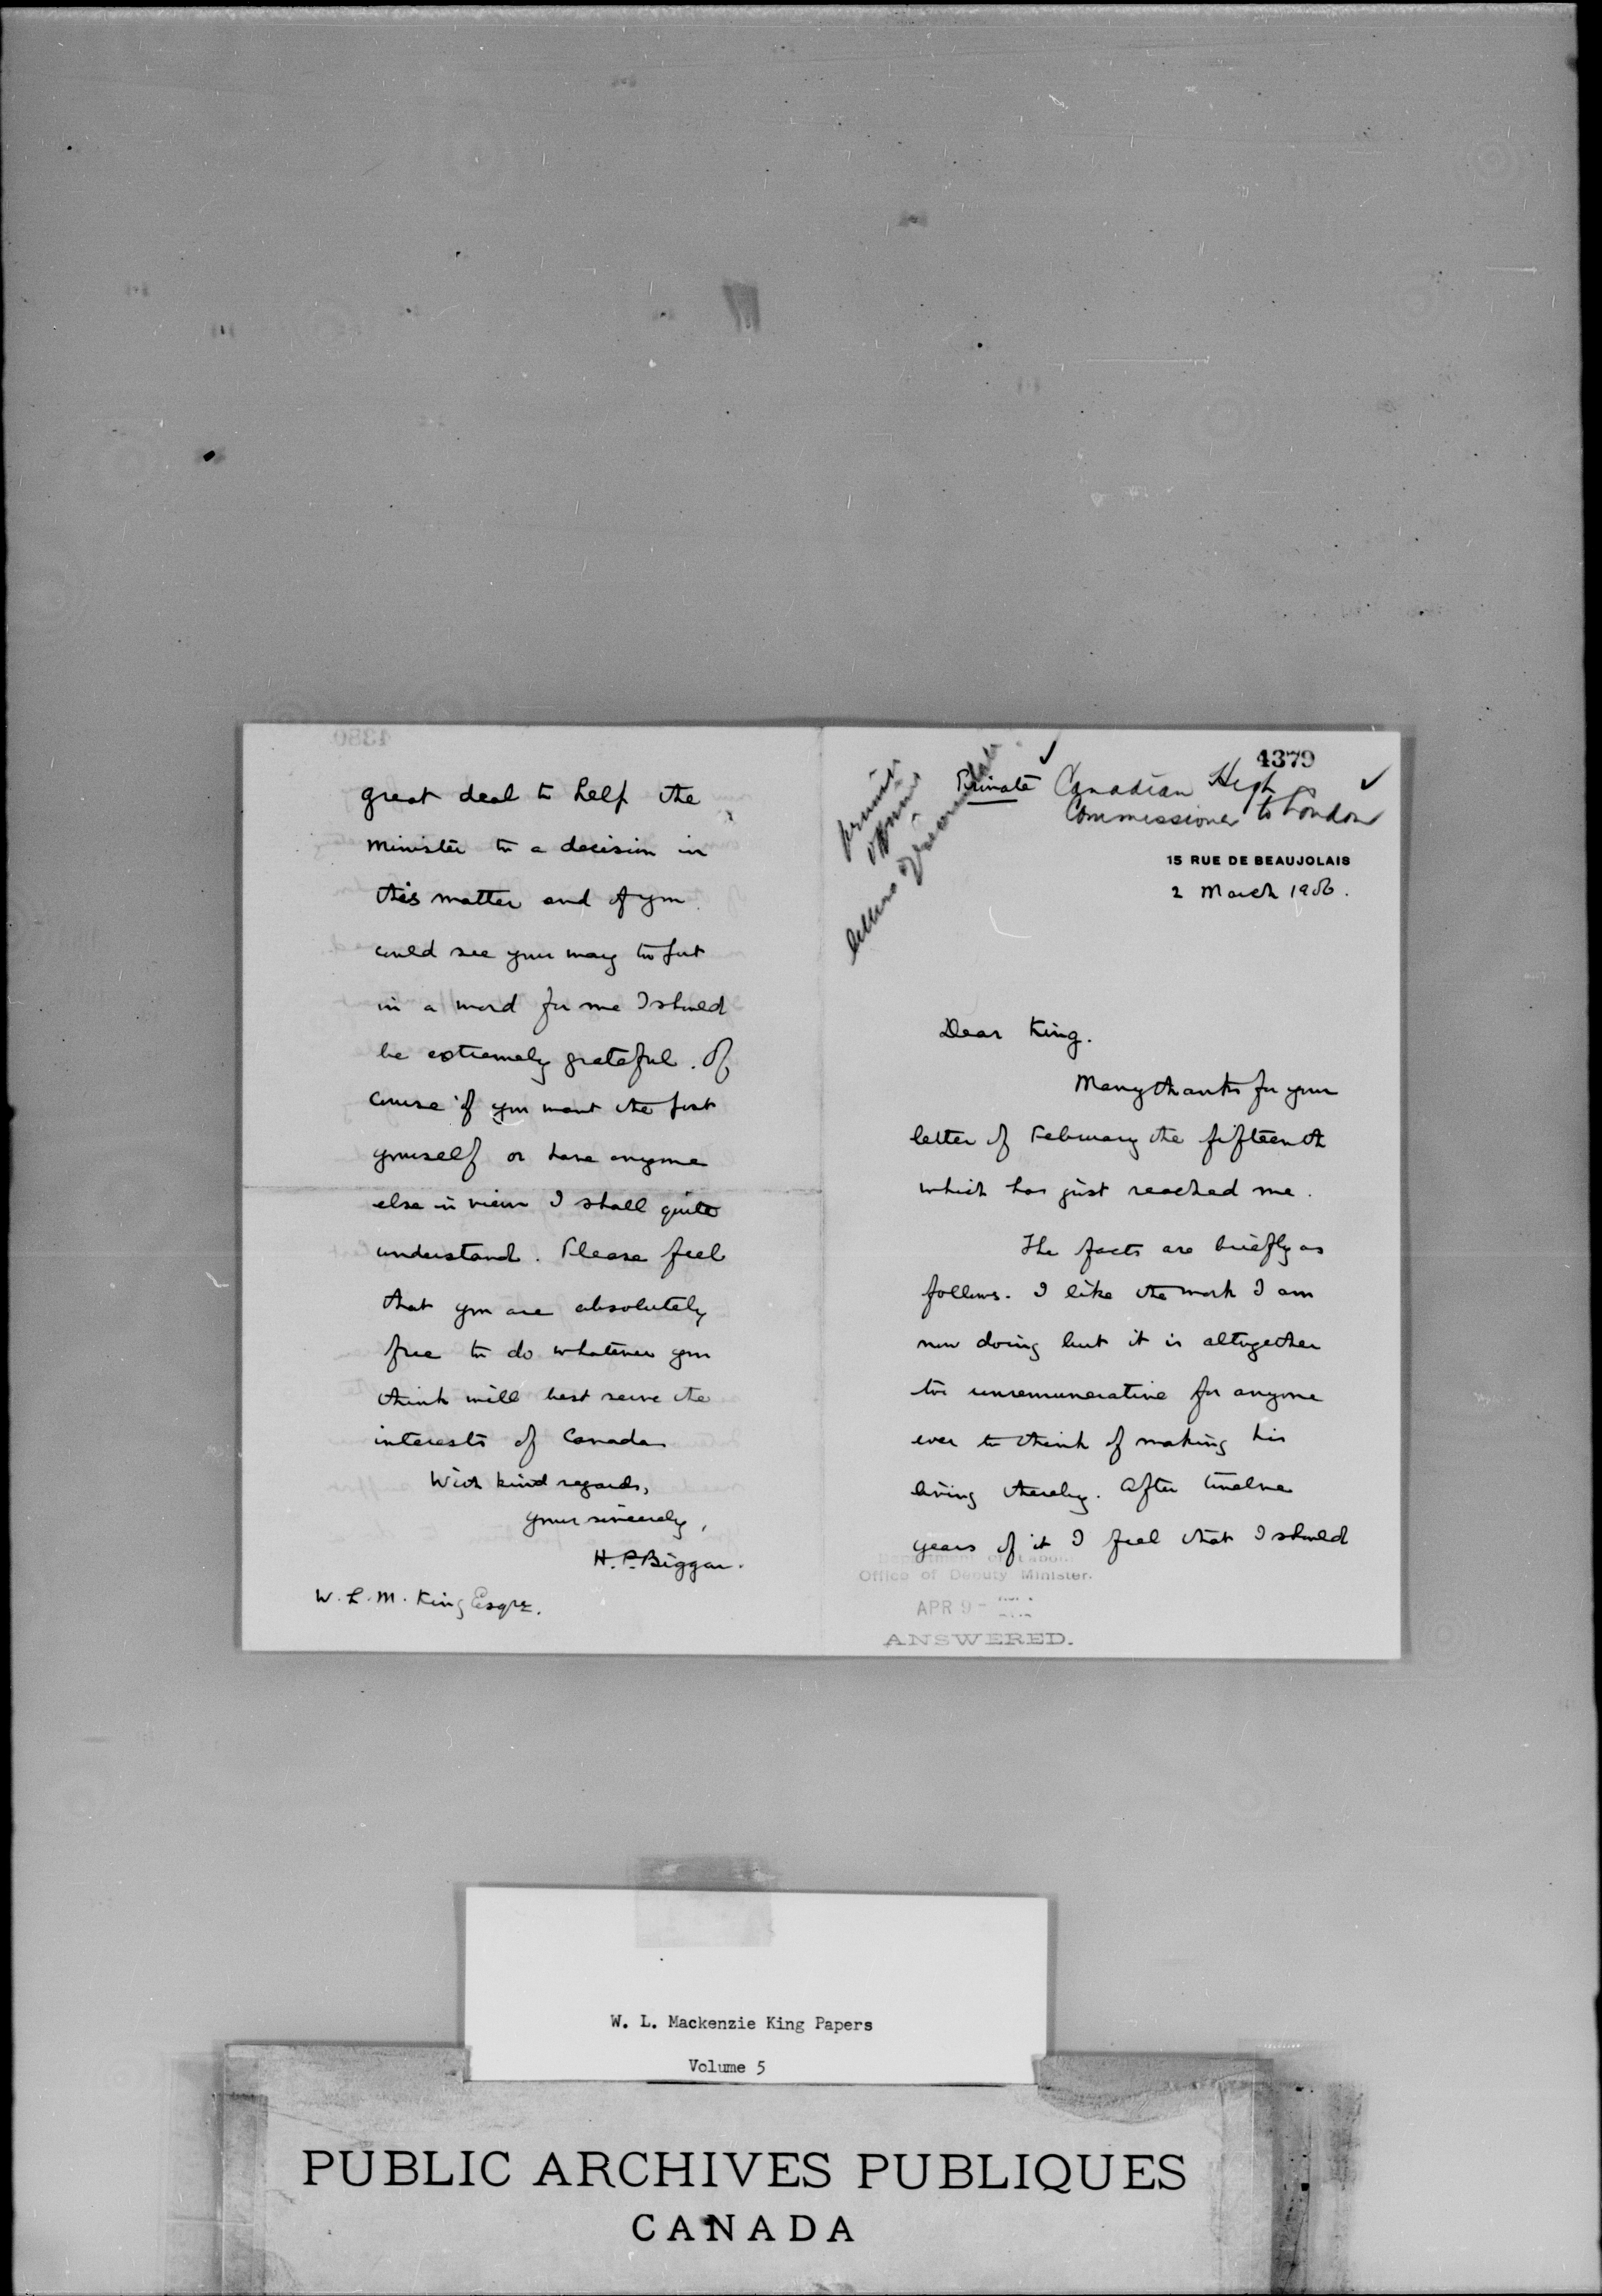 4379
Private Canadian High
Commissioner to London
15 RUE DE BEAUJOLAIS
2 March 1906.
Dear King.
Many thanks for your
letter of February the fifteenth
which has just reached me.
The facts are briefly as
follows. I like the work I am
now doing but it is altogether
too unremunerative for anyone
ever to think of making his
living thereby. After twelve
years of it I feel that I should
Department of Labour
Office of Deputy Minister.
APR 9 -
ANSWERED.
great deal to help the
Minister to a decision in
this matter and if you
could see your way to put
in a word for me I should
be extremely grateful. Of
course if you want the post
yourself or have anyone
else in view I shall quite
understand. Please feel
that you are absolutely
free to do whatever you
think will best serve the
interests of Canada
With kind regards,
Yours sincerely,
H. P. Biggar.
W. L. M. King Esqre.
W. L. Mackenzie King Papers
Volume 5
PUBLIC ARCHIVES PUBLIQUES
CANADA